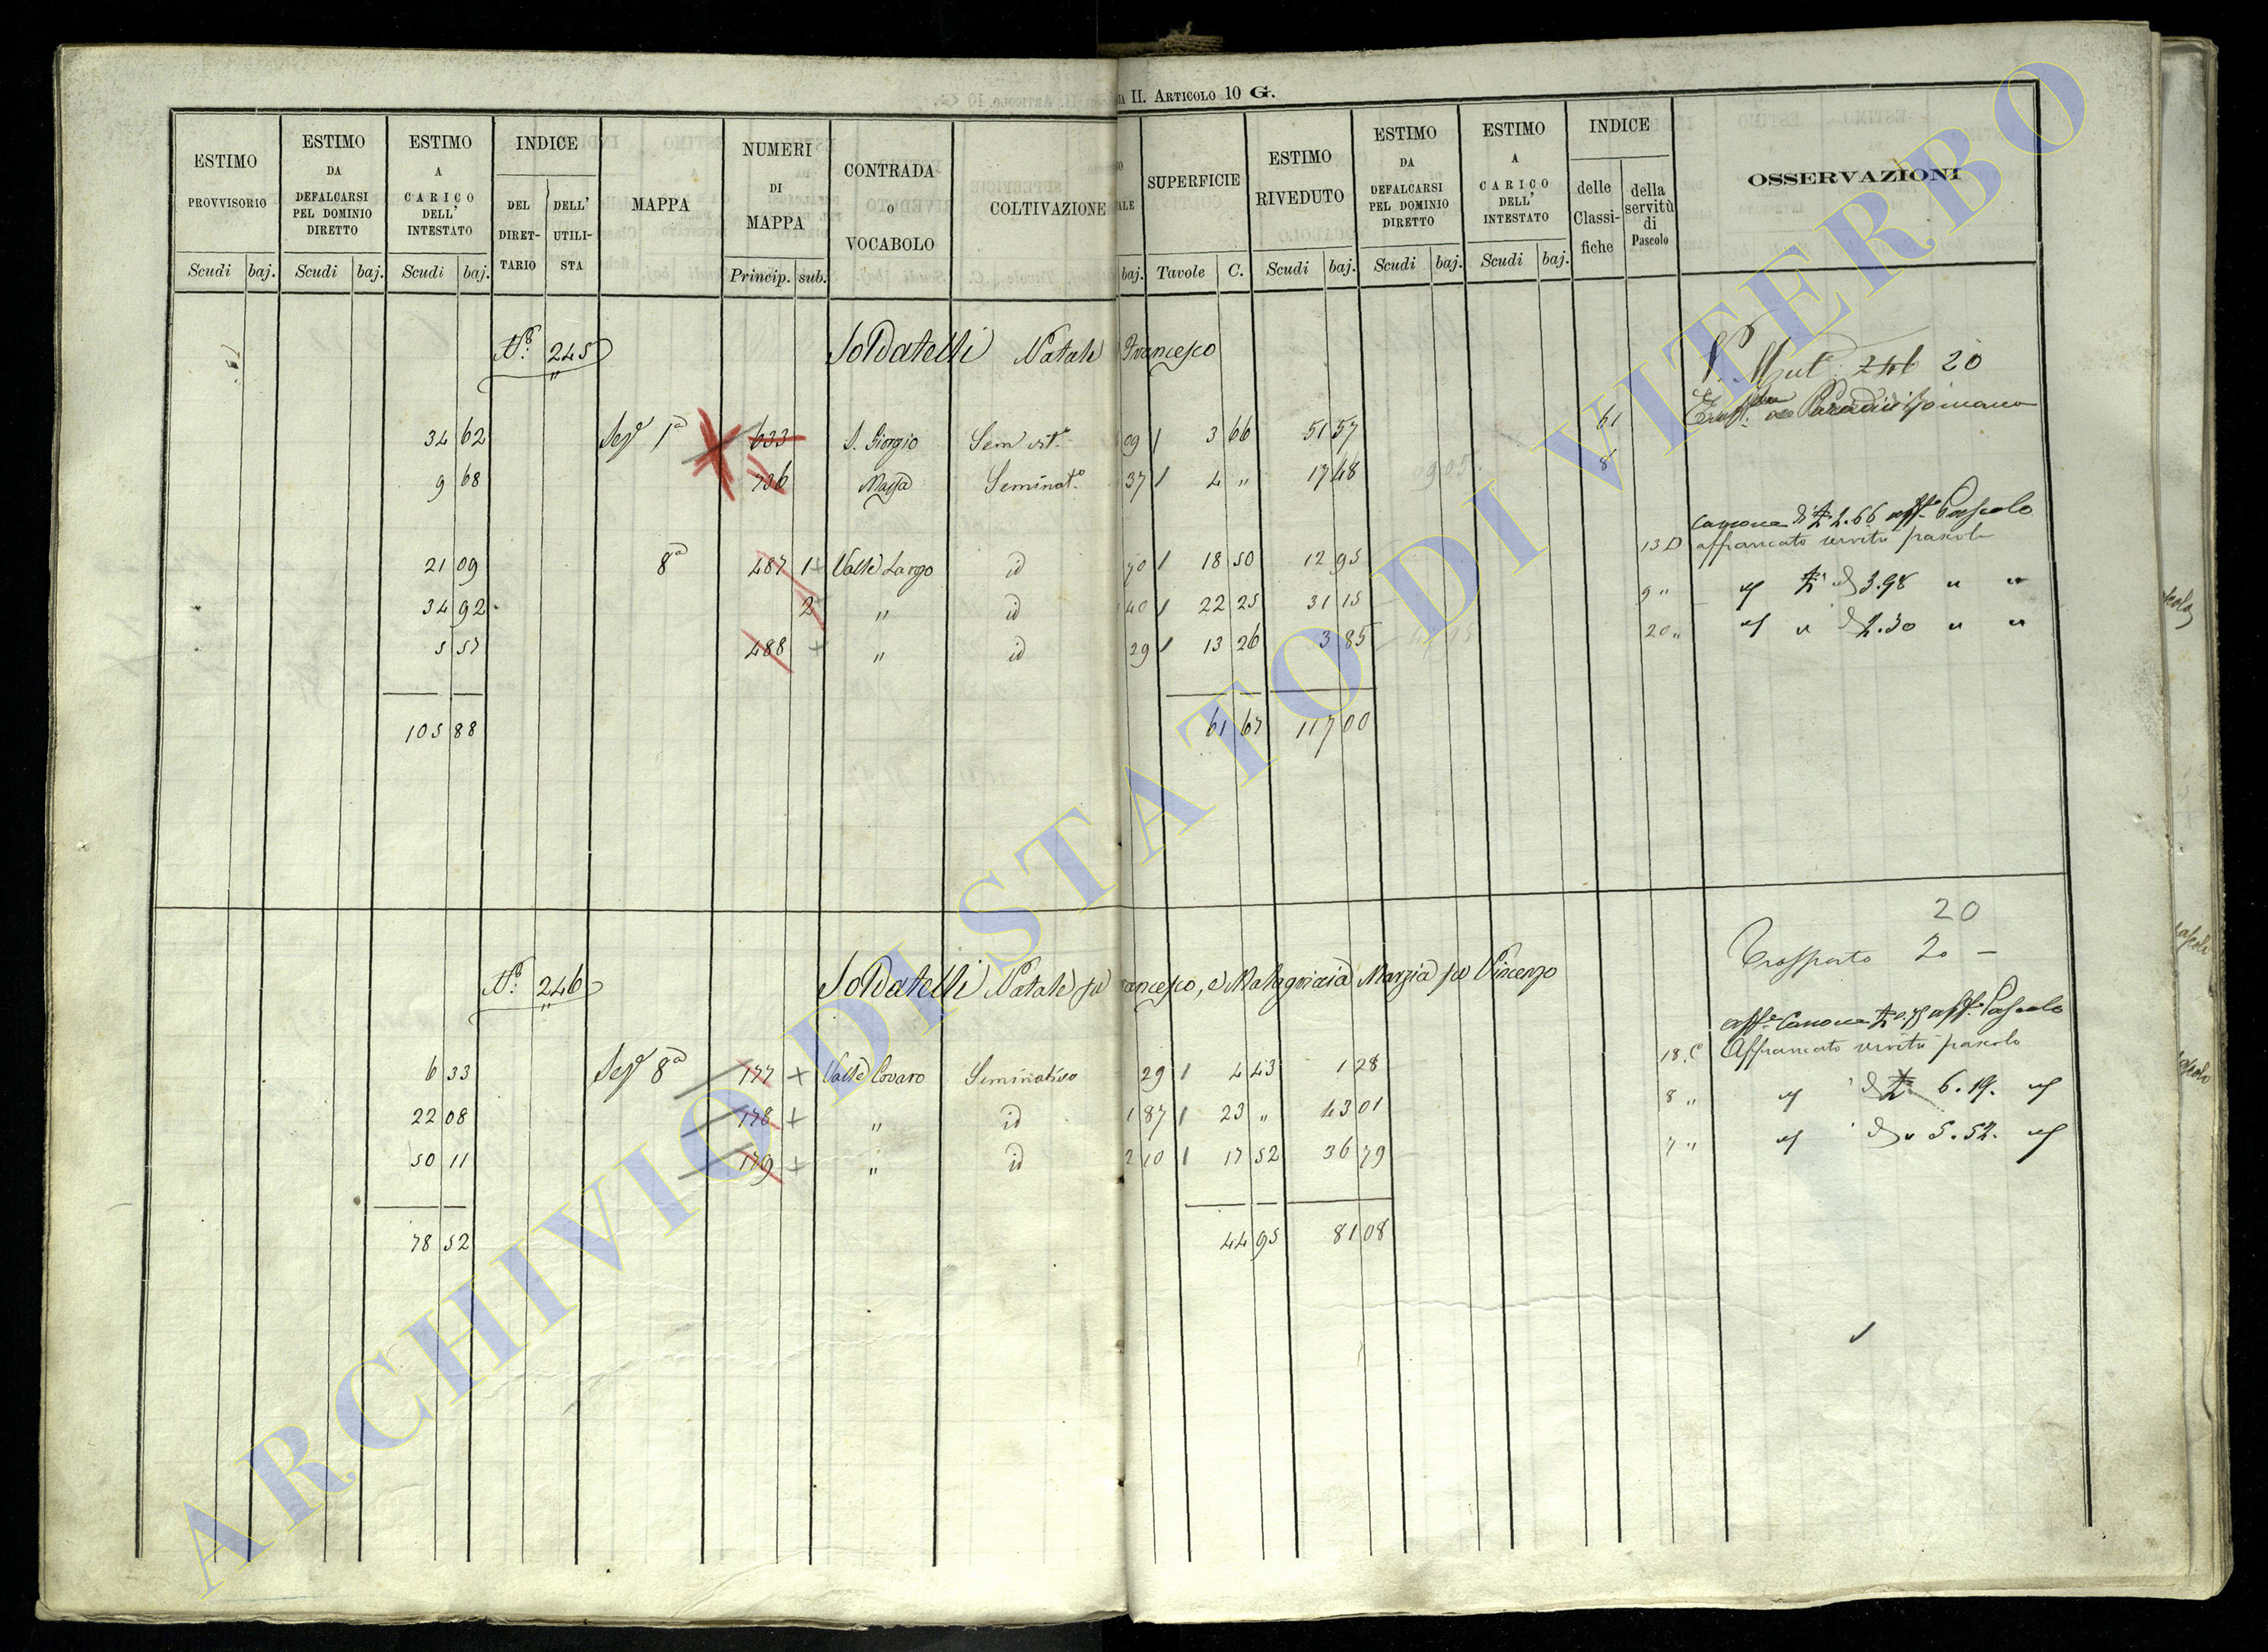 II. ARTICOLO 10 G.
ESTIMO PROVVISORIO
Scudi baj.
ESTIMO DA DEFALCARSI PEL DOMINIO DIRETTO
Scudi baj.
ESTIMO A CARICO DELL' INTESTATO
Scudi baj.
INDICE
DEL DIRETTARIO
DELL' UTILISTA
MAPPA
NUMERI DI MAPPA
Princip. sub.
CONTRADA o VOCABOLO
COLTIVAZIONE
baj.
SUPERFICIE
Tavole C.
ESTIMO RIVEDUTO
Scudi baj.
ESTIMO DA DEFALCARSI PEL DOMINIO DIRETTO
Scudi baj.
ESTIMO A CARICO DELL' INTESTATO
Scudi baj.
INDICE
delle Classifiche
della servitù di Pascolo
OSSERVAZIONI
N.º 245 Soldatelli Natale Francesco
20
34 62 Sez.e 1a 633 S. Giorgio Sem vit.o 09 3 66 51 57 61
9 68 736 Massa Seminat.o 37 4 " 17 48 8
Canone di 2.66 aff.o Pascolo
21 09 8a 487 1 Valle Largo id 70 18 50 12 95 13 D affrancato servitù pascolo
34 92 2 " id 40 22 25 31 15 9 " 3.98 " "
5 57 488 " id 29 13 26 3 85 20 " " 2.30 " "
105 88 61 67 117 00
20
Trasporto 20 -
N.º 246 Soldatelli Natale fu Francesco, e Marzia fu Vincenzo
Canone aff.o Pascolo
6 33 Sez.e 8a 177 + Valle Covaro Seminativo 29 4 43 1 28 18. C Affrancato servitù pascolo
22 08 178 + " id 1 87 23 " 43 01 8 " 6.19.
50 11 179 + " id 2 10 17 52 36 79 7 " 5.52.
78 52 44 95 81 08
ARCHIVIO DI STATO DI VITERBO